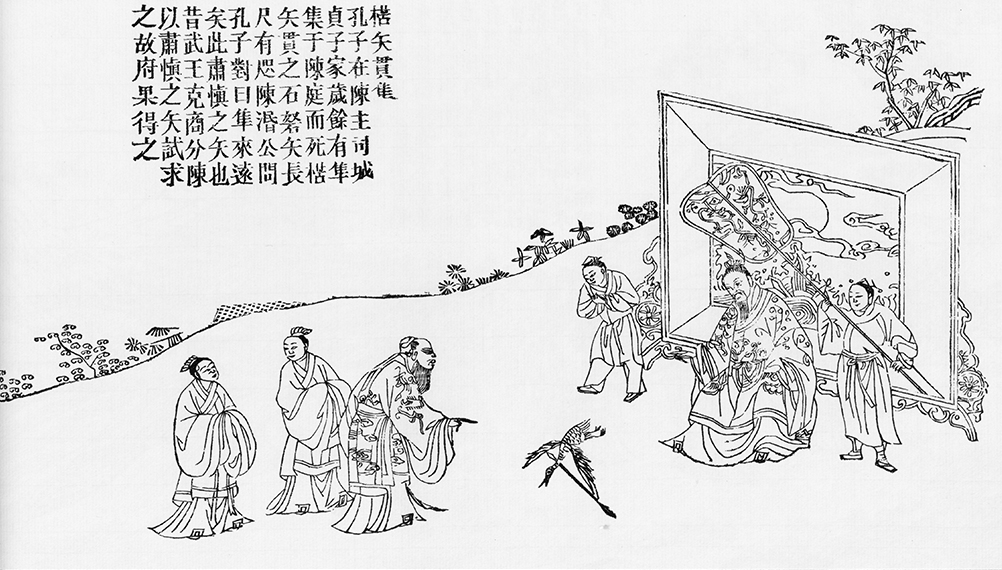 楛矢貫隼
孔子在陳主司城
貞子家歲餘有隼
集于陳庭而死楛
矢貫之石砮矢長
尺有咫陳湣公問
孔子對曰隼來遠
矣此肅慎之矢也
昔武王克商分陳
以肅慎之矢試求
之故府果得之